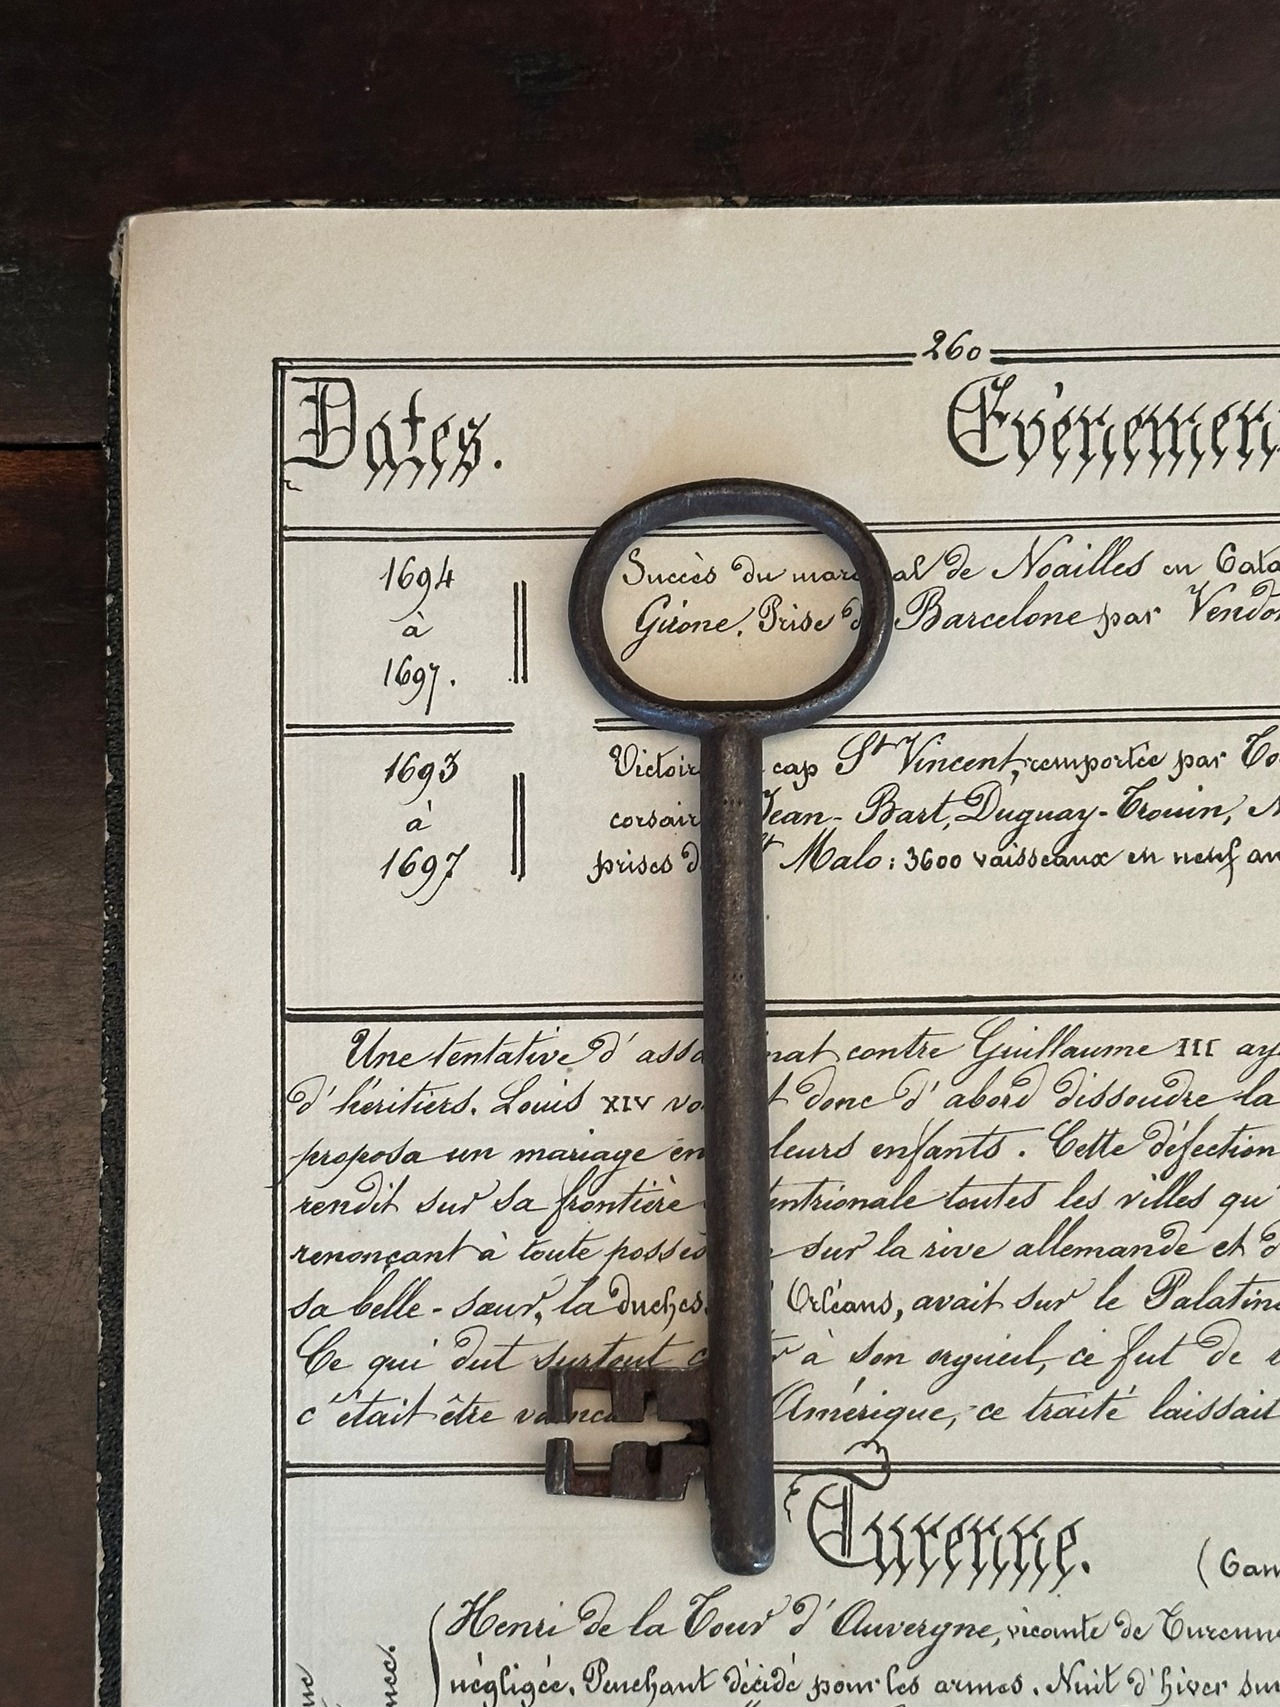 260
Dates. Evénemen
1694 Succès du mar al de Noailles en Cata
à Girone. Prise d Barcelone par Vendô
1697.
1693 Victoir cap St Vincent, remportée par To
à corsair Jean-Bart, Duguay-Trouin, N
1697 prises d t Malo : 3600 vaisseaux en neuf an
Une tentative d'assa nat contre Guillaume III ay
d'héritiers. Louis XIV vo t donc d'abord dissoudre la
proposa un mariage en leurs enfants. Cette défection
rendit sur sa frontière tentrionale toutes les villes qu'
renonçant à toute posses sur la rive allemande et d
sa belle-sœur, la duches Orléans, avait sur le Palatina
Ce qui dut surtout c r à son orgueil, ce fut de r
c'était être vainc Amérique, ce traité laissait
Turenne. (Gan
Henri de la Tour d'Auvergne, vicomte de Turenne
négligée. Penchant décidé pour les armes. Nuit d'hiver sur